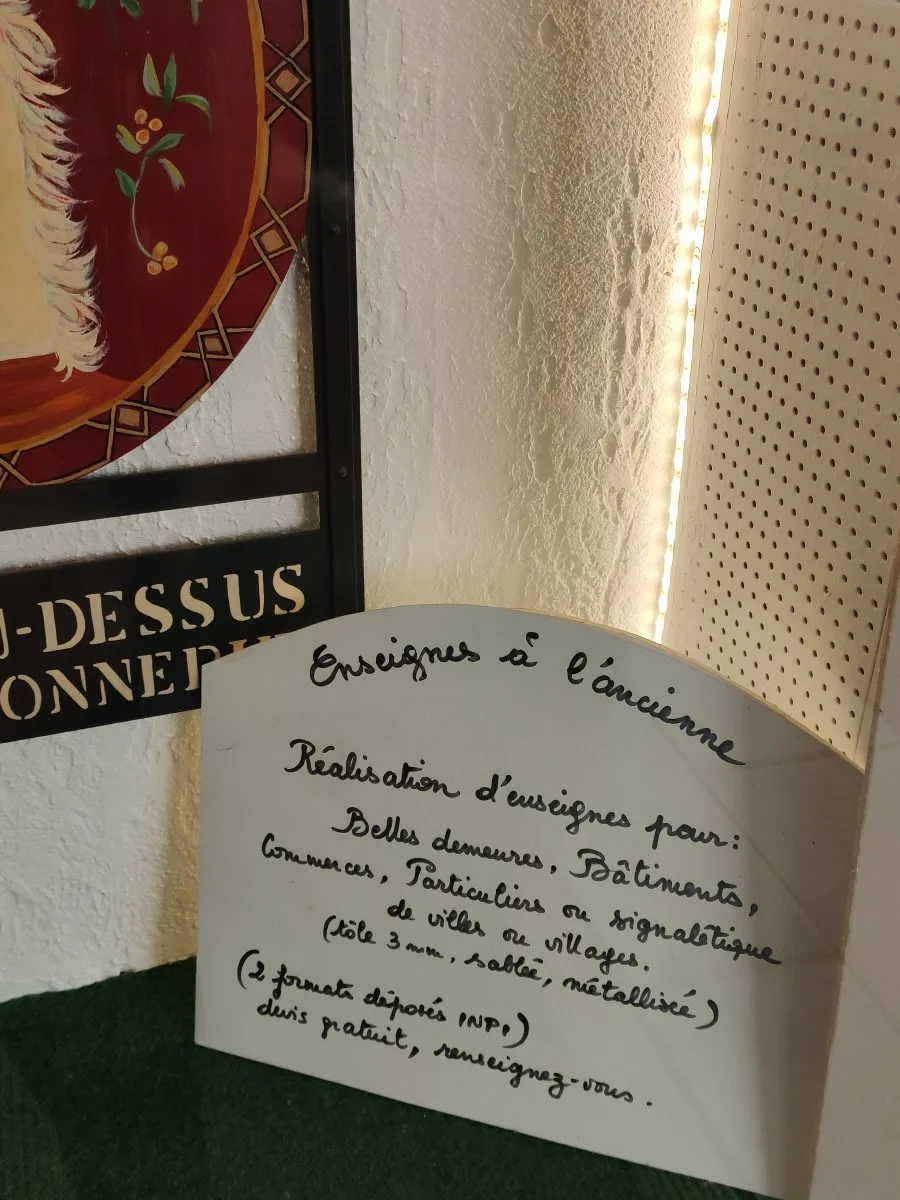 -DESSUS
Enseignes à l'ancienne
Réalisation d'enseignes pour:
Belles demeures, Bâtiments,
Commerces, Particuliers ou signalétique
de villes ou villages.
(tôle 3 mm, sablée, métallisée)
(2 formats déposés INPI)
devis gratuit, renseignez-vous.